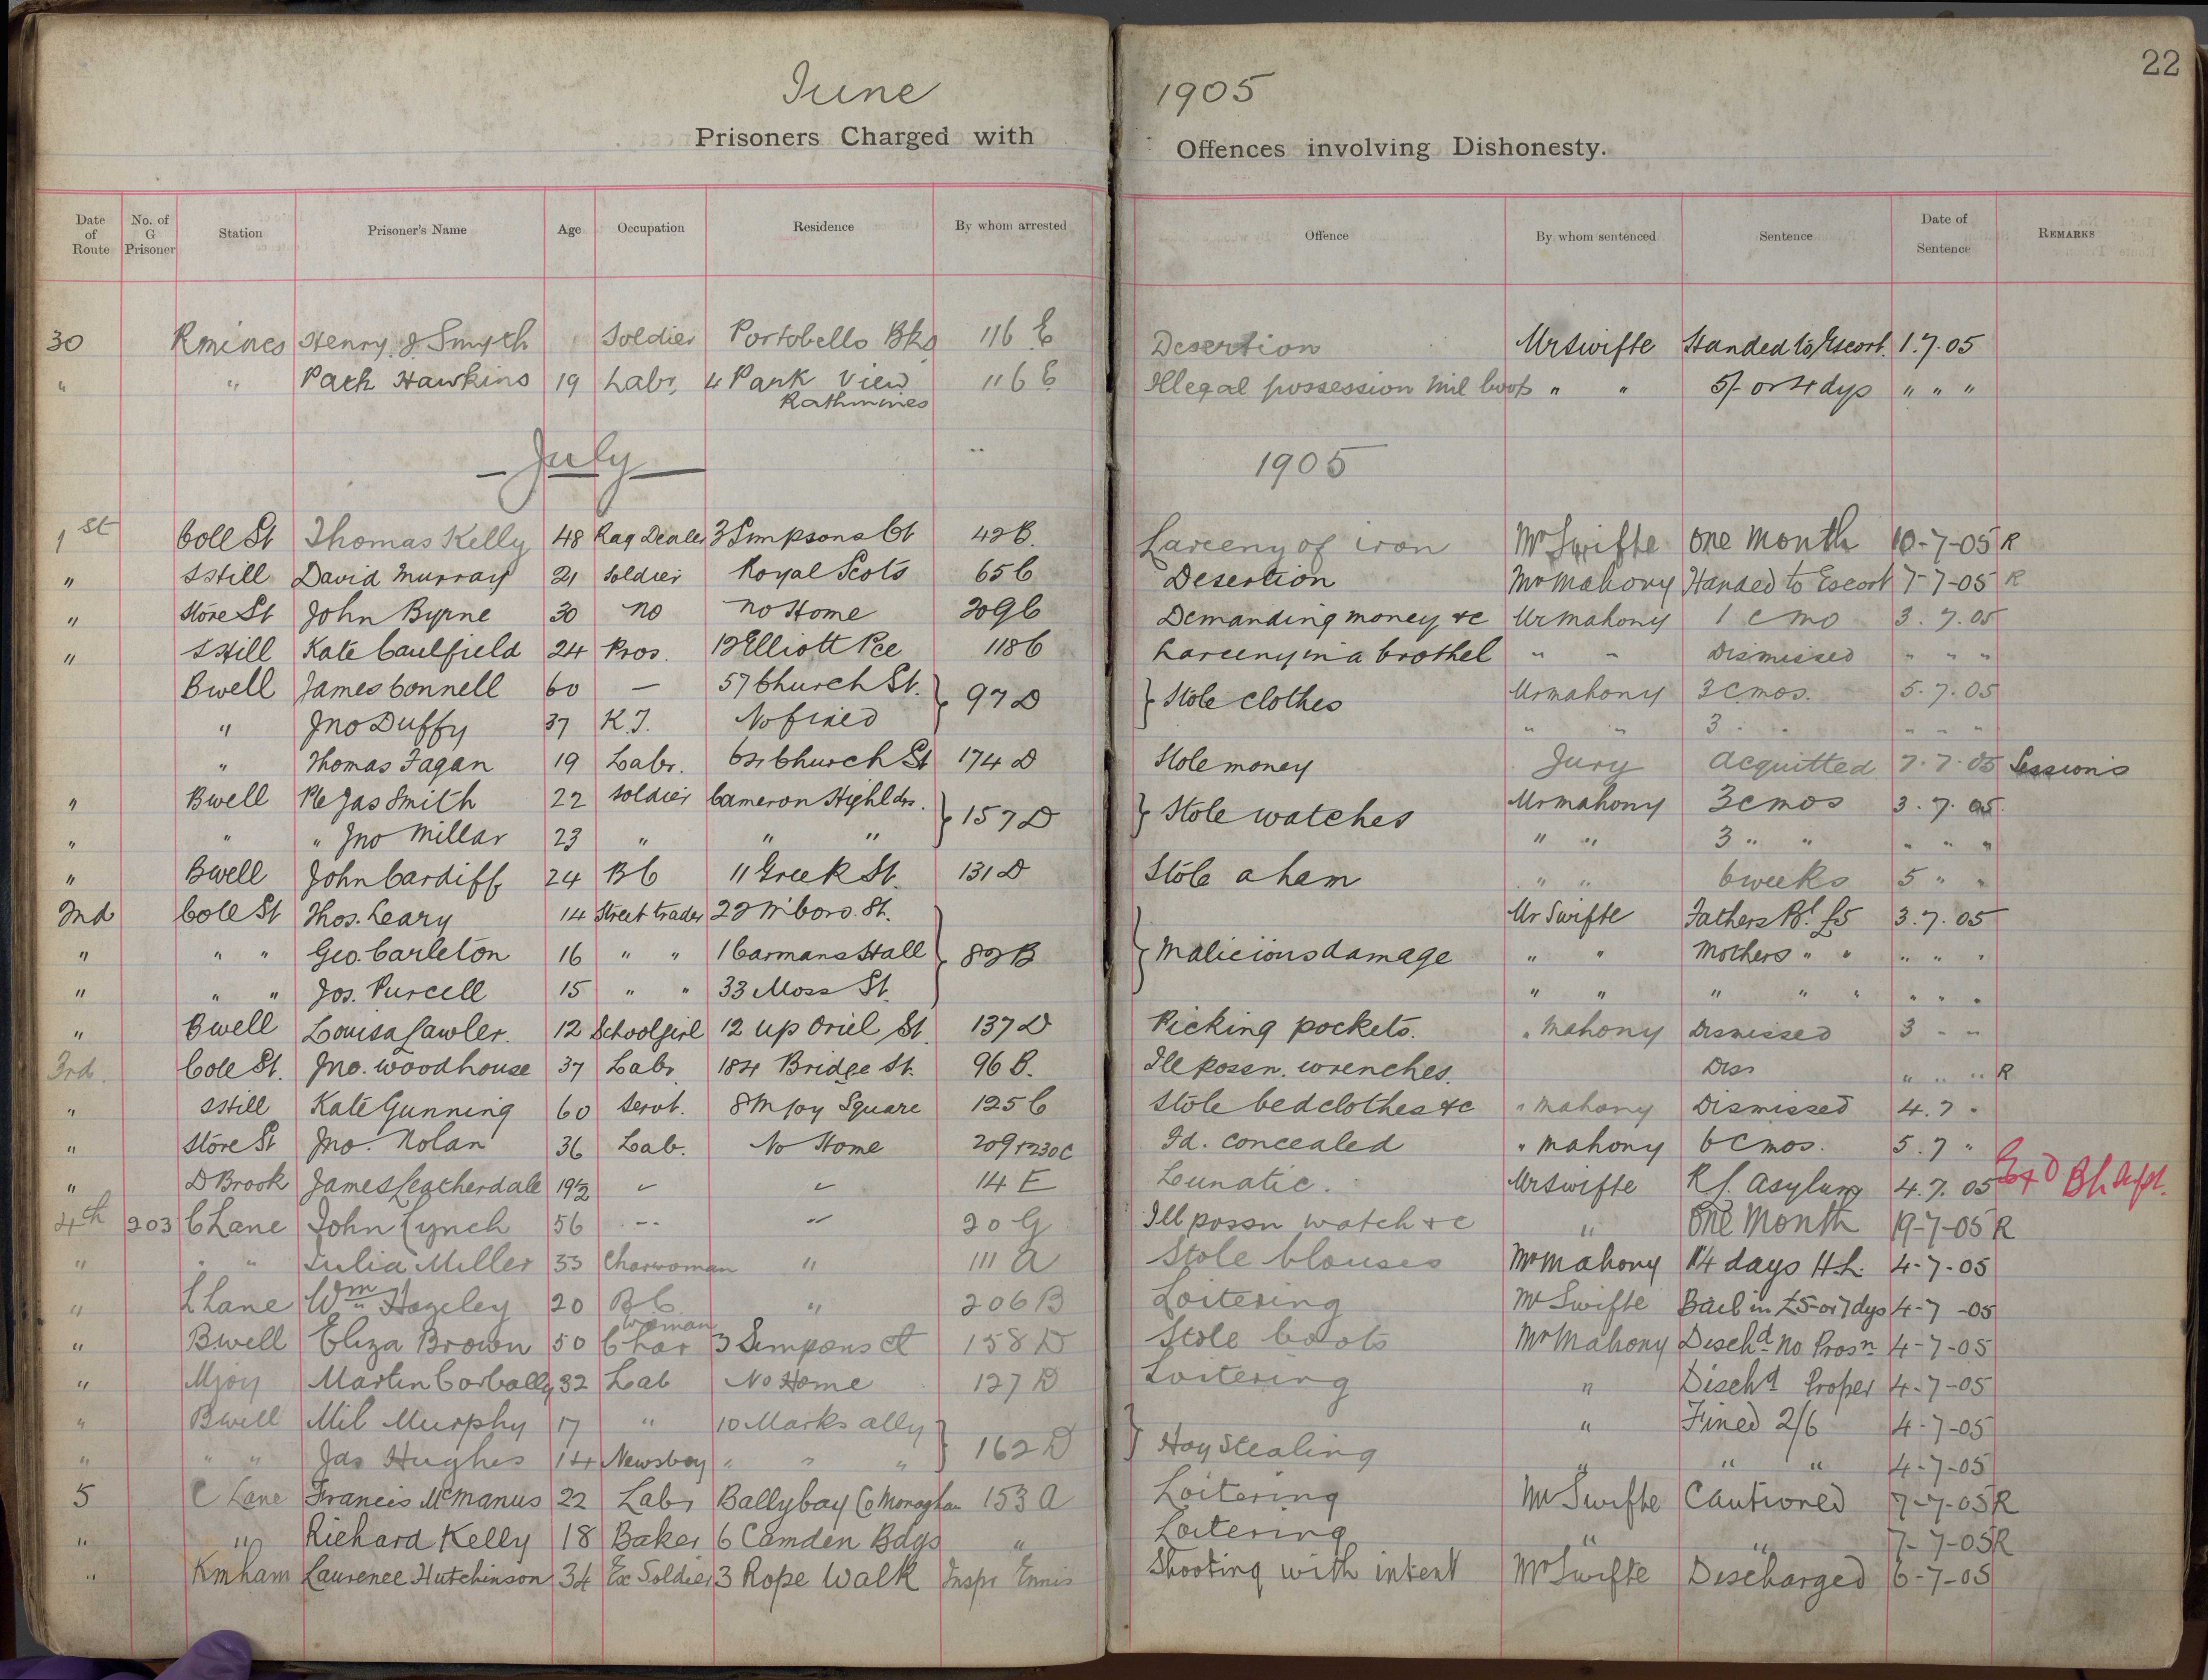 22
June 1905
Prisoners Charged with Offences involving Dishonesty.
Date of Route | No. of G Prisoner | Station | Prisoner's Name | Age | Occupation | Residence | By whom arrested | Offence | By whom sentenced | Sentence | Date of Sentence | REMARKS
30 Rmines Henry J Smyth Soldier Portobello Bks 116 E Desertion Mr Swifte Handed to Escort. 1.7.05
" " Patk Hawkins 19 Labr. 4 Park View 116 E Illegal possession mil boots " " 5/- or 4 dys " " "
Rathmines
July 1905
1st Coll St Thomas Kelly 48 Rag Dealer 3 Simpsons Ct 42 B. Larceny of iron Mr Swifte One Month 10-7-05 R
" SHill David Murray 21 Soldier Royal Scots 65 C Desertion Mr Mahony Handed to Escort 7-7-05 R
" Store St John Byrne 30 no no Home 209 C Demanding money &c Mr Mahony 1 c mo 3.7.05
" SHill Kate Caulfield 24 Pros. 12 Elliott Pce 118 C Larceny in a brothel " " Dismissed " " "
Bwell James Connell 60 — 57 Church St. 97 D Stole clothes Mr Mahony 3 c mos. 5.7.05
" Jno Duffy 37 K.J. No fixed " " 3 " " " " "
" Thomas Fagan 19 Labr. Church St 174 D Stole money Jury Acquitted 7.7.05 Sessions
" Bwell Pte Jas Smith 22 Soldier Cameron Highldrs. 157 D Stole watches Mr Mahony 3 c mos 3.7.05.
" " " Jno Millar 23 " " " " " 3 " " " " "
" Bwell John Cardiff 24 BC 11 Greek St. 131 D Stole a ham " " 6 weeks 5 " "
2nd Coll St Thos. Leary 14 Street trader 22 M'boro. St. 82 B Malicious damage Mr Swifte Fathers Bl. £5 3.7.05
" " " Geo. Carleton 16 " " 1 Carmans Hall " " Mothers " " " " "
" " " Jos. Purcell 15 " " 33 Moss St. " " " " " " " "
" Bwell Louisa Lawler. 12 Schoolgirl 12 Up Oriel St. 137 D Picking pockets. " Mahony Dismissed 3 " "
3rd. Coll St. Jno. Woodhouse 37 Labr 184 Bridge St. 96 B. Ill possn. wrenches. Diss " " " R
" SHill Kate Gunning 60 Servt. 8 Mjoy Square 125 C Stole bedclothes &c " Mahony Dismissed 4.7 "
" Store St Jno. Nolan 36 Lab. No Home 209 + 230 C Fd. concealed " Mahony 6 c mos. 5.7 "
" D Brook James Leatherdale 19½ " " 14 E Lunatic. Mr Swifte R. Asylum 4.7.05
4th 203 C Lane John Lynch 56 -- " 20 G Ill possn watch &c " One Month 19-7-05 R
" " " Julia Miller 33 Charwoman " 111 A Stole blouses Mr Mahony 14 days H.L. 4-7-05
" C Lane Wm Hozeley 20 BC " 206 B Loitering Mr Swifte Bail in £5-or 7 dys 4-7-05
" Bwell Eliza Brown 50 Char woman 3 Simpsons ct 158 D Stole boots Mr Mahony Dischd no Prosn 4-7-05
" Mjoy Martin Corbally 32 Lab No Home 127 D Loitering " Dischd Proper 4-7-05
" Bwell Mil Murphy 17 " 10 Marks ally 162 D Hay Stealing " Fined 2/6 4-7-05
" " " Jas Hughes 14 Newsboy " " " " " " 4-7-05
5 C Lane Francis McManus 22 Labr Ballybay Co Monaghan 153 A Loitering Mr Swifte Cautioned 7-7-05 R
" " Richard Kelly 18 Baker 6 Camden Bdgs " Loitering " " 7-7-05 R
" Kmham Laurence Hutchinson 34 Ex Soldier 3 Rope Walk Inspr Ennis Shooting with intent Mr Swifte Discharged 6-7-05